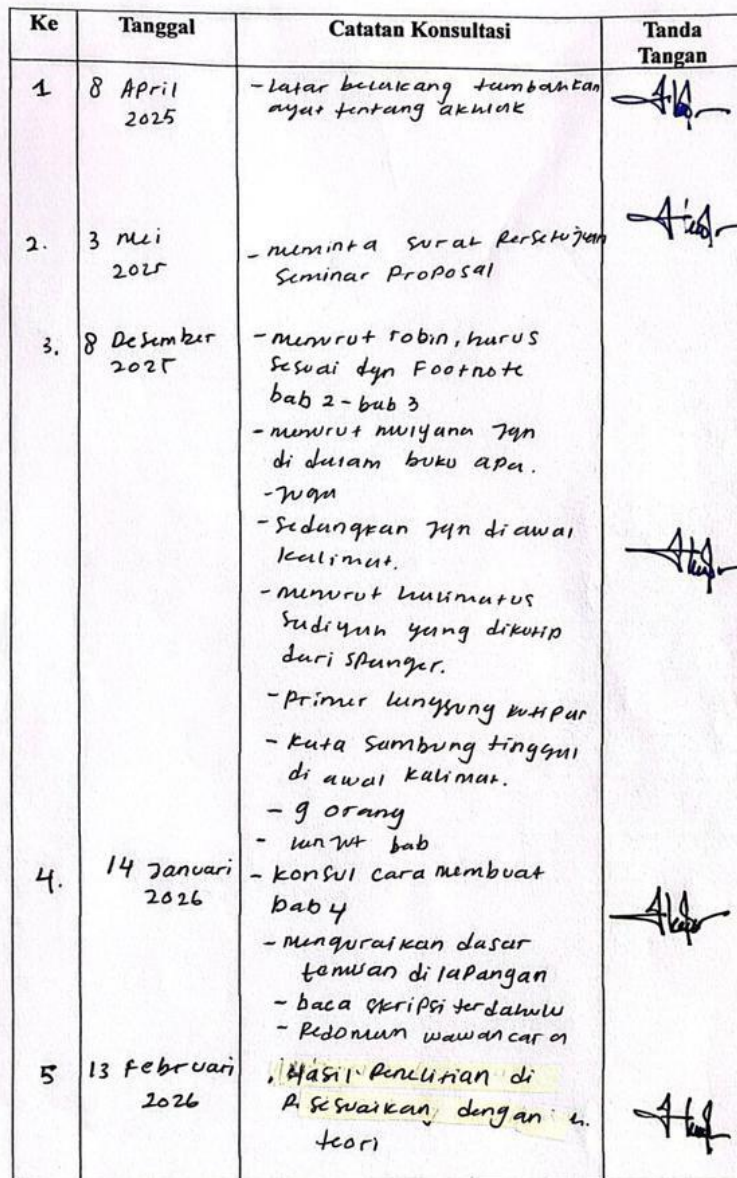 Ke Tanggal Catatan Konsultasi Tanda
Tangan
1 8 April - Latar belakang tambahkan
2025 ayat tentang akhlak
2. 3 Mei - meminta surat Persetujuan
2025 Seminar Proposal
3. 8 Desember - menurut robin, harus
2025 sesuai dgn Footnote
bab 2 - bab 3
- menurut mulyana jgn
di dalam buku apa.
- juga
- Sedangkan jgn di awal
kalimat.
- menurut halimatus
Sadiyah yang dikutip
dari spanger.
- Primer langsung kutipan
- Kata Sambung tinggal
di awal kalimat.
- 9 orang
- lanjut bab
4. 14 Januari - konsul cara membuat
2026 bab 4
- menguraikan dasar
temuan di lapangan
- baca skripsi terdahulu
- Pedoman wawancara
5 13 Februari Hasil Penelitian di
2026 sesuaikan dengan
teori